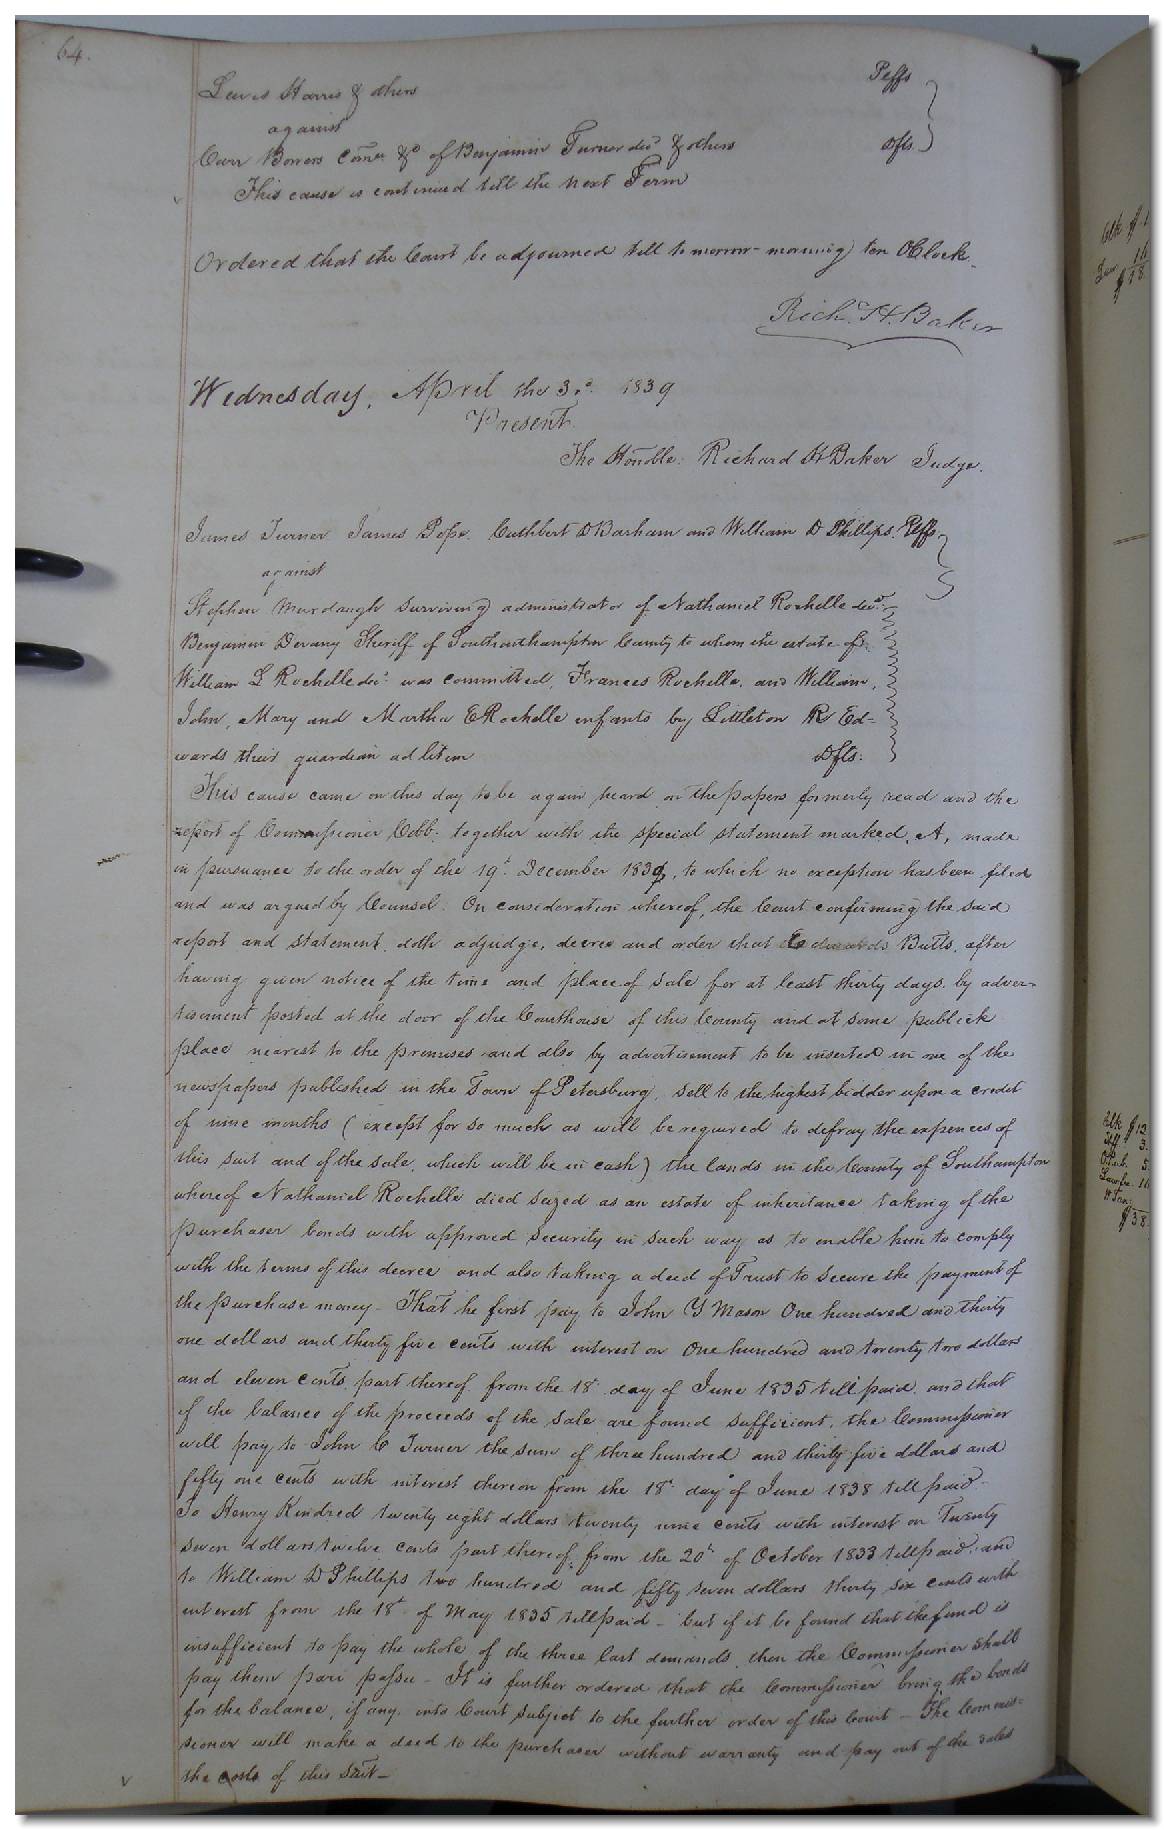 64.
Lewis Harris & others Peffs
against
Carr Bowers Comr &c of Benjamin Turner decd & others Dfts.
This cause is continued till the next Term
Ordered that the Court be adjourned till tomorrow morning ten OClock.
Richd. H. Baker
Wednesday, April the 3rd. 1839
Present
The Honble: Richard H Baker Judge.
James Turner James Pope. Cuthbert D Barham and William D Phillips. Peffs.
against
Stephen Murdaugh surviving administrator of Nathaniel Rochelle decd.
Benjamin Devany Sheriff of Southamthampton County to whom the estate of
William L Rochelle decd. was committed, Frances Rochelle, and William,
John, Mary and Martha E Rochelle infants by Littleton R Ed-
wards their guardian ad litem Dfts:
This cause came on this day to be again heard on the papers formerly read and the
report of Commissioner Cobb. together with the special statement marked, A, made
in pursuance to the order of the 19t. December 183, to which no exception has been filed
and was argued by Counsel. On consideration whereof, the Court confirming the said
report and statement, doth adjudge, decree and order that Edwards Butts, after
having given notice of the time and place of sale for at least thirty days, by adver-
tisement posted at the door of the Courthouse of this County and at some publick
place nearest to the premises and also by advertisement to be inserted in one of the
newspapers published in the Town of Petersburg, sell to the highest bidder upon a credit
of nine months (except for so much as will be required to defray the expences of
this suit and of the sale, which will be in cash) the lands in the County of Southampton
whereof Nathaniel Rochelle died seized as an estate of inheritance taking of the
purchaser bonds with approved security in such way as to enable him to comply
with the terms of this decree and also taking a deed of Trust to secure the payment of
the purchase money- That he first pay to John Y Mason One hundred and thirty
one dollars and thirty five cents with interest on One hundred and twenty two dollars
and eleven cents, part thereof from the 18t day of June 1835 till paid, and that
if the balance of the proceeds of the sale are found sufficient, the Commissioner
will pay to John C Turner the sum of three hundred and thirty five dollars and
fifty one cents with interest thereon from the 18t. day of June 1838 till paid-
To Henry Kindred twenty eight dollars twenty nine cents with interest on Twenty
seven dollars twelve cents part thereof, from the 20th of October 1833 till paid, and
to William D Phillips two hundred and fifty seven dollars thirty six cents with
interest from the 18t. of May 1835 till paid - but if it be found that the fund is
insufficient to pay the whole of the three last demands, then the Commissioner shall
pay them pari passu - It is further ordered that the Commissioner bring the bonds
for the balance, if any, into Court subject to the further order of this Court - The Commis-
sioner will make a deed to the purchaser without warranty and pay out of the sales
the costs of this Suit-